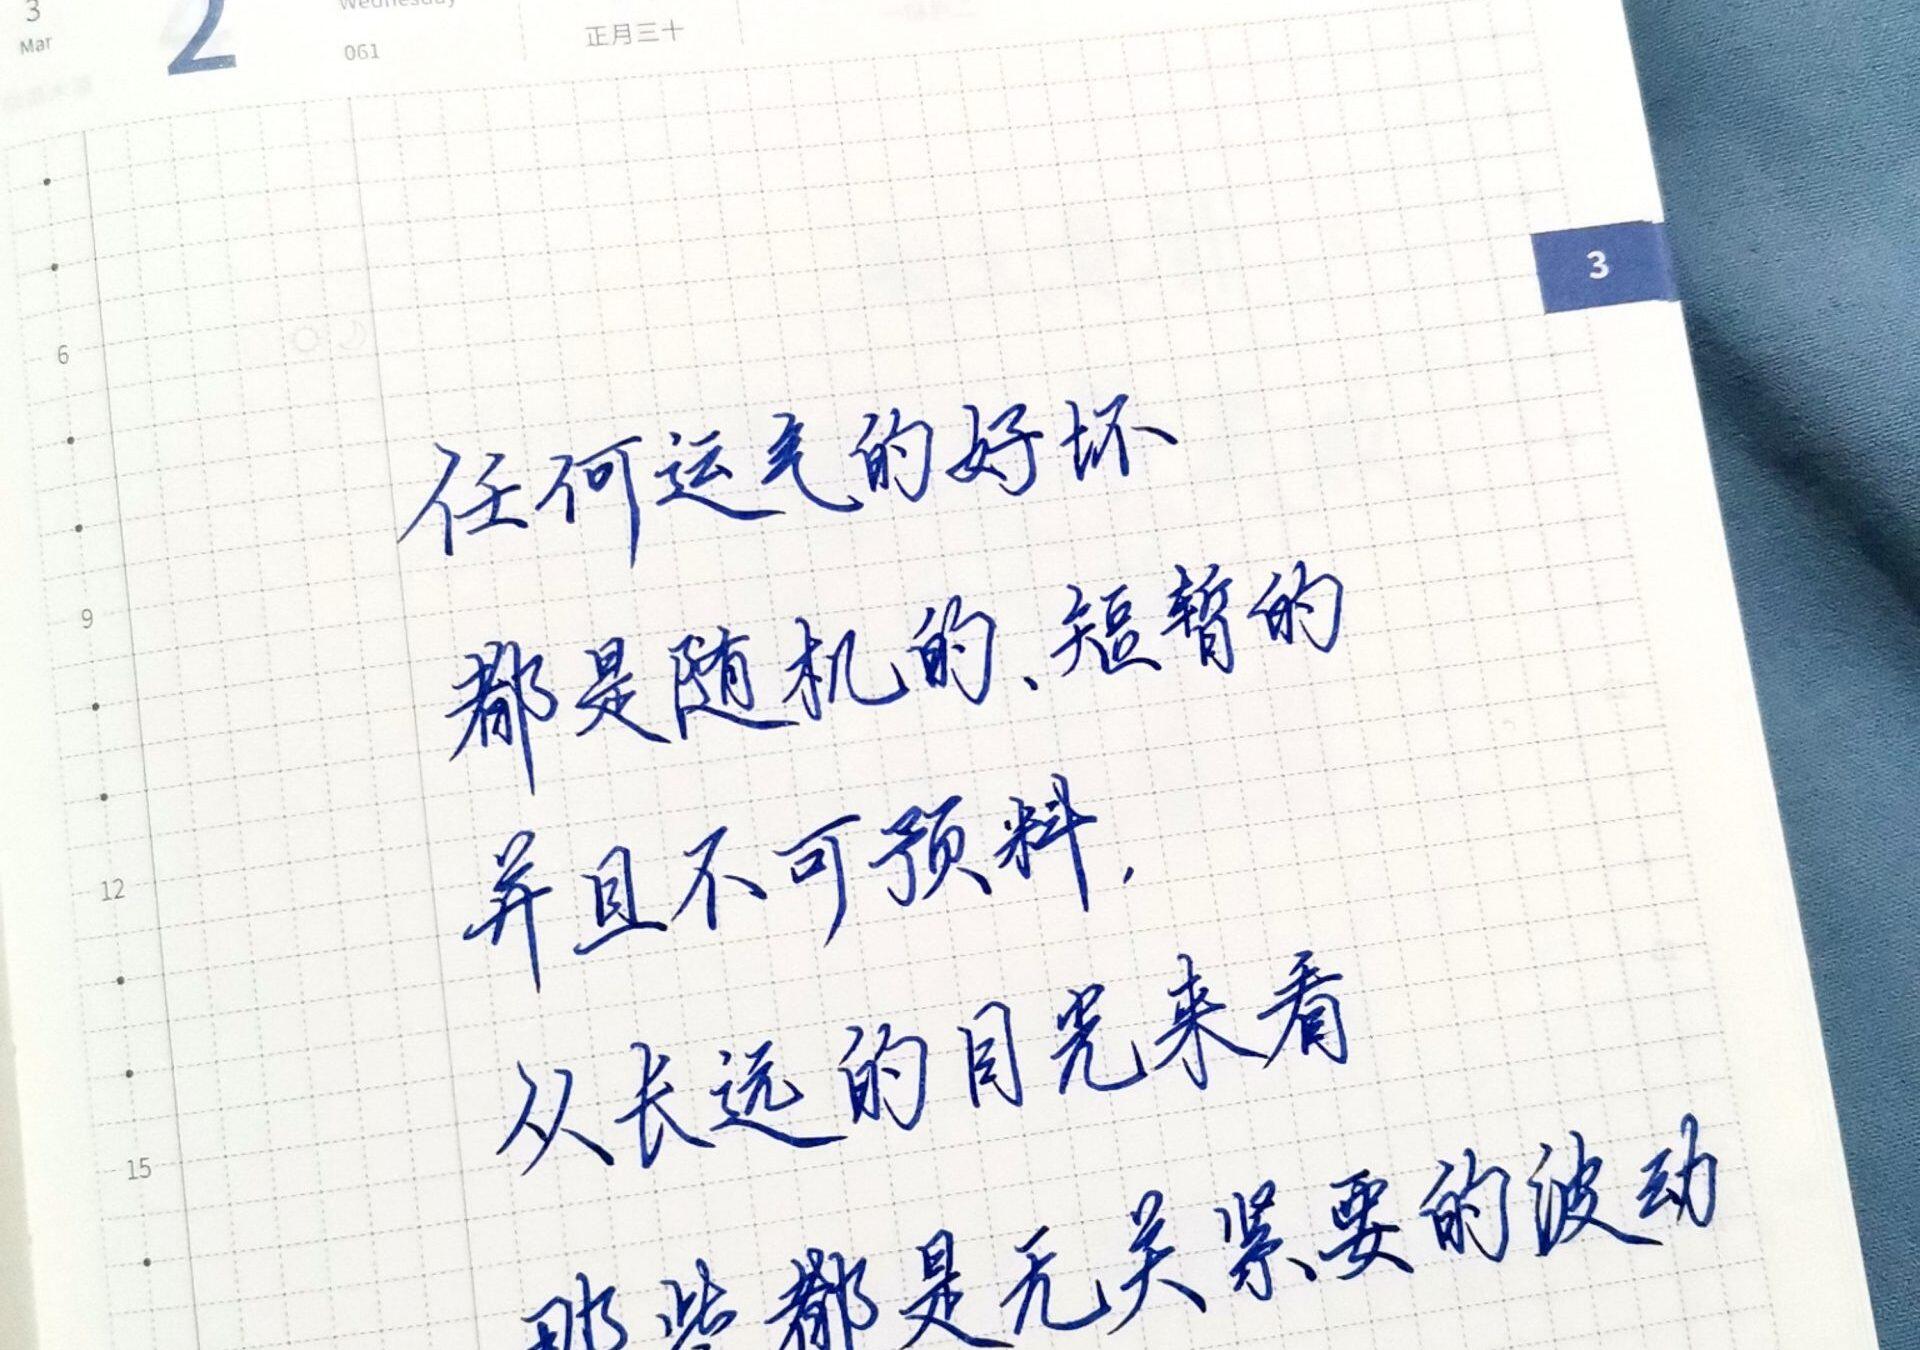 3
Mar
2
Wednesday
061
正月三十
3
6
9
12
15
任何运气的好坏
都是随机的、短暂的
并且不可预料,
从长远的目光来看
那些都是无关紧要的波动